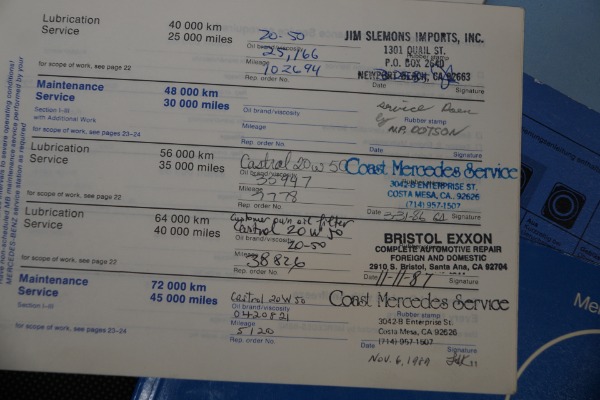 Lubrication
Service
40 000 km
25 000 miles
20-50
Oil brand/viscosity
25,766
Mileage
102694
Rep. order No.
for scope of work, see page 22
JIM SLEMONS IMPORTS, INC.
1301 QUAIL ST.
Rubber stamp
P.O. BOX 2640
NEWPORT BEACH, CA. 92663
Date
Signature
Maintenance
Service
Section I-III
with Additional Work
48 000 km
30 000 miles
Oil brand/viscosity
Mileage
Rep. order No.
for scope of work, see pages 23-24
Service Done
by
Rubber stamp
N.P. DOTSON
Date
Signature
Lubrication
Service
56 000 km
35 000 miles
Castrol 20W50
Oil brand/viscosity
35947
Mileage
778
Rep. order No.
for scope of work, see page 22
Coast Mercedes Service
3042-B ENTERPRISE ST.
COSTA MESA, CA. 92626
(714) 957-1507
Date 3-31-86
Signature
Lubrication
Service
64 000 km
40 000 miles
Customer own oil filter
Castrol 20W50
Oil brand/viscosity
20-50
Mileage
38826
Rep. order No.
for scope of work, see page 22
BRISTOL EXXON
COMPLETE AUTOMOTIVE REPAIR
FOREIGN AND DOMESTIC
2910 S. Bristol, Santa Ana, CA 92704
Date 11-11-87
Signature
Maintenance
Service
Section I-III
72 000 km
45 000 miles
Castrol 20W50
Oil brand/viscosity
0420821
Mileage
5120
Rep. order No.
for scope of work, see pages 23-24
Coast Mercedes Service
Rubber stamp
3042-B Enterprise St.
Costa Mesa, CA. 92626
(714) 957-1507
Date
Signature
Nov. 6, 1989
MERCEDES-BENZ service station as required
Me